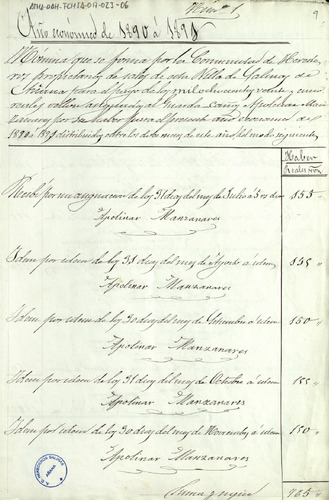 AMH-DDH-FCM1A-017-023-06
Num.º 1
9
Año económico de 1890 á 1891
Nómina que se forma por la Comunidad de Herede-
ros propietarios de sales de esta Villa de Salinas de
Añana para el pago de los mil ochocientos veinte y cinco
reales vellón al Guarda Campo Apolinar Man-
zanares por su haber para el presente año económico de
1890 á 1891 distribuido entre los doce meses de este año, del modo siguiente
Haber
Reales vellón
Recibí por mi asignacion de los 31 dias del mes de Julio á 5 rs dia 155
Apolinar Manzanares
Idem por idem de los 31 dias del mes de Agosto á idem 155
Apolinar Manzanares
Idem por idem de los 30 dias del mes de Setiembre á idem 150
Apolinar Manzanares
Idem por idem de los 31 dias del mes de Octubre á idem 155
Apolinar Manzanares
Idem por idem de los 30 dias del mes de Noviembre á idem 150
Apolinar Manzanares
Suma y sigue 765
AÑANA